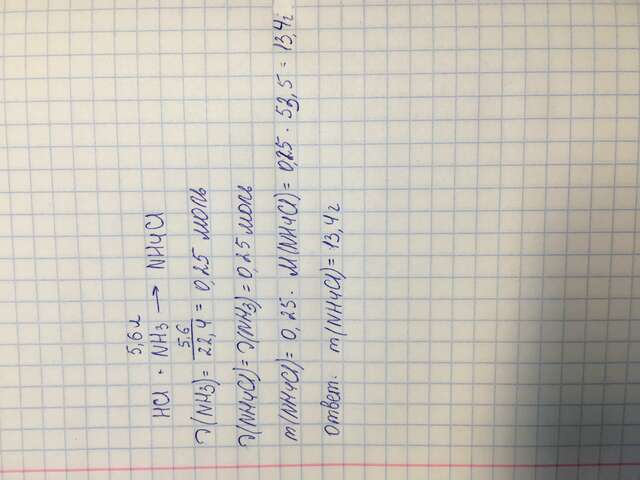 5,6л
HCl + NH3 → NH4Cl
ν(NH3) = 5,6/22,4 = 0,25 моль
ν(NH4Cl) = ν(NH3) = 0,25 моль
m(NH4Cl) = 0,25 · M(NH4Cl) = 0,25 · 53,5 = 13,4г
Ответ. m(NH4Cl) = 13,4г